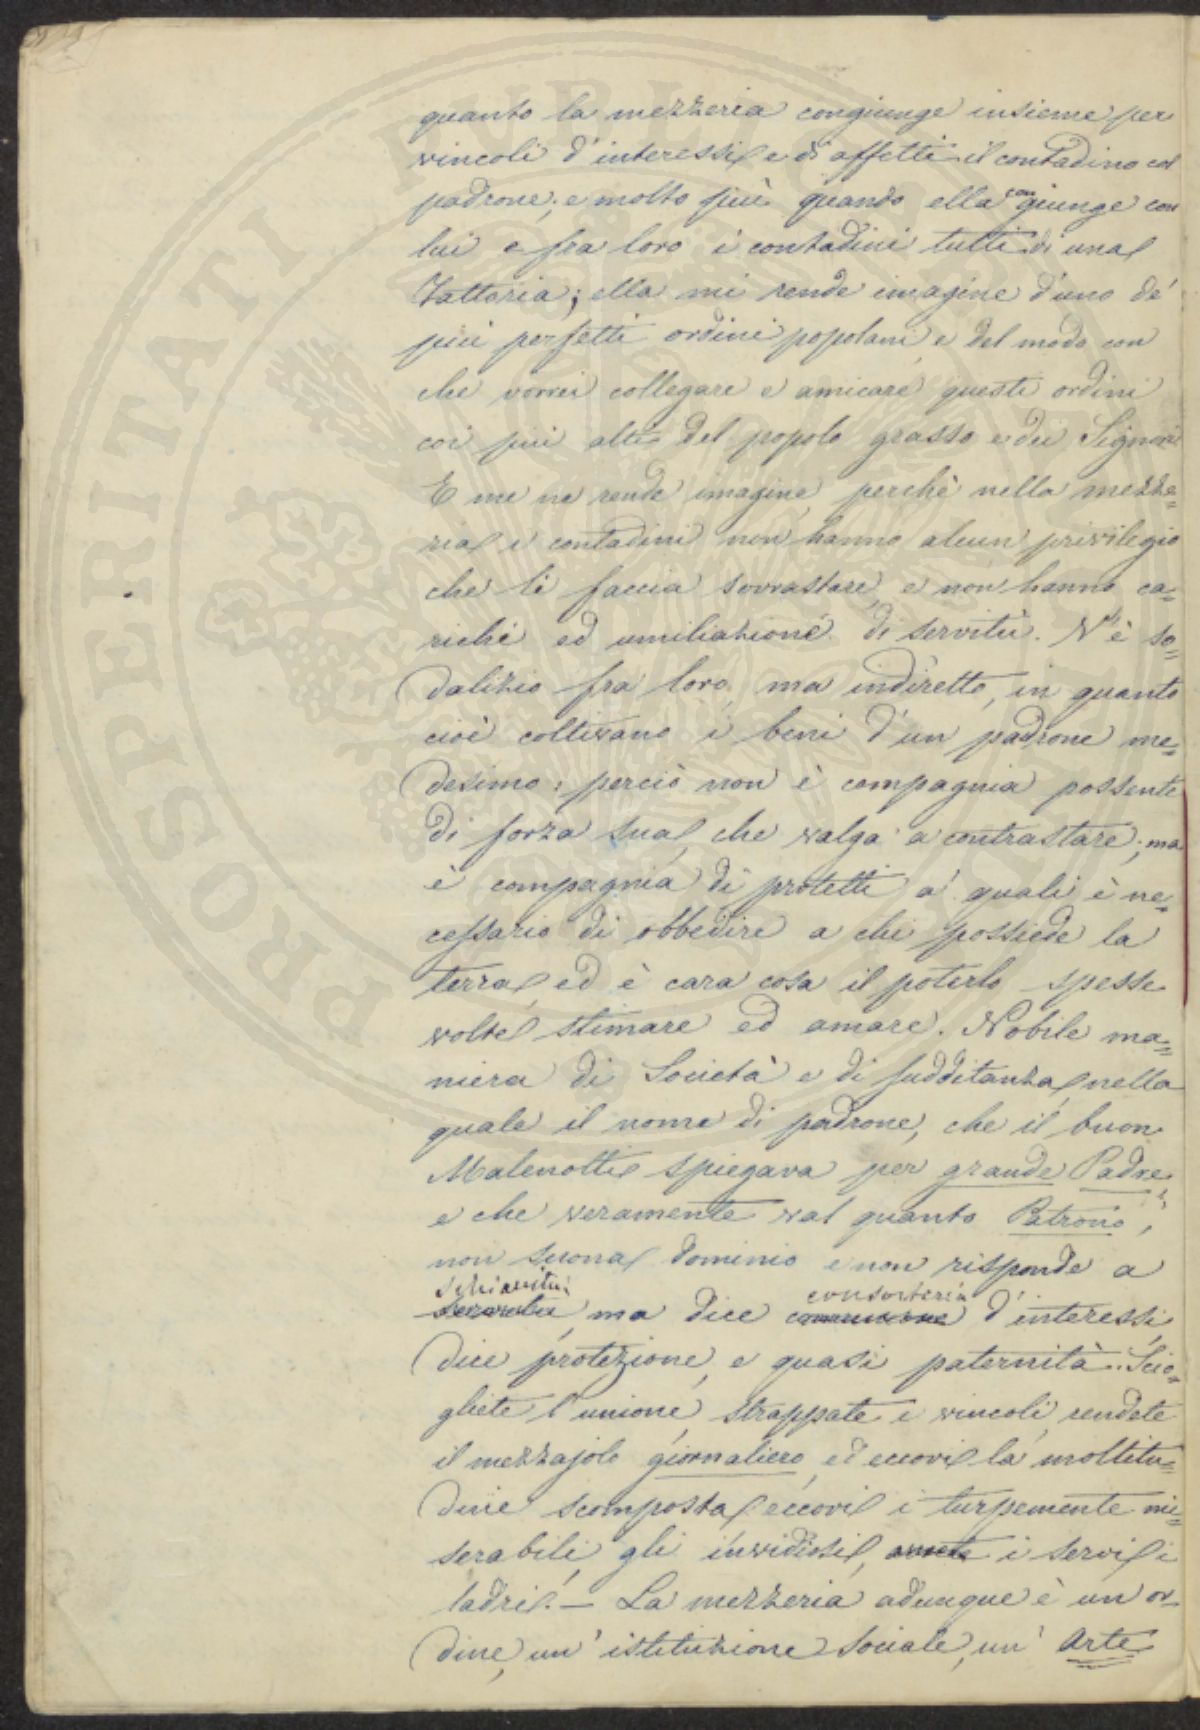 quanto la mezzeria congiunge insieme per
vincoli d'interessi e di affetti il contadino col
padrone; e molto più quando ella congiunge con
lui e fra loro i contadini tutti di una
Fattoria; ella mi rende imagine d'uno de'
più perfetti ordini popolani, e del modo con
che vorrei collegare e amicare questi ordini
coi più alti del popolo grasso e dei Signori
E me ne rende imagine, perchè nella mezze=
ria i contadini non hanno alcun privilegio
che li faccia sovrastare, e non hanno ca=
riche ed umiliazione di servitù. V'è so=
dalizio fra loro, ma indiretto, in quanto
cioè coltivano i beni d'un padrone me=
desimo; perciò non è compagnia possente
di forza sua, che valga a contrastare; ma
è compagnia di protetti a' quali è ne=
cessario di obbedire a chi possiede la
terra, ed è cara cosa il poterlo spesse
volte stimare ed amare. Nobile ma=
niera di Società e di sudditanza, nella
quale il nome di padrone, che il buon
Malenotti spiegava per grande Padre
e che veramente val quanto Patrono,
non suona dominio e non risponde a
schiavitù
ma dice consorteria d'interessi,
dice protezione, e quasi paternità. Scio=
gliete l'unione, strappate i vincoli, rendete
il mezzajolo giornaliero, ed eccovi la moltitu=
dine scomposta, eccovi i turpemente mi=
serabili, gli invidiosi, i servi, i
ladri. — La mezzeria adunque è un or=
dine, un'istituzione sociale, un' Arte